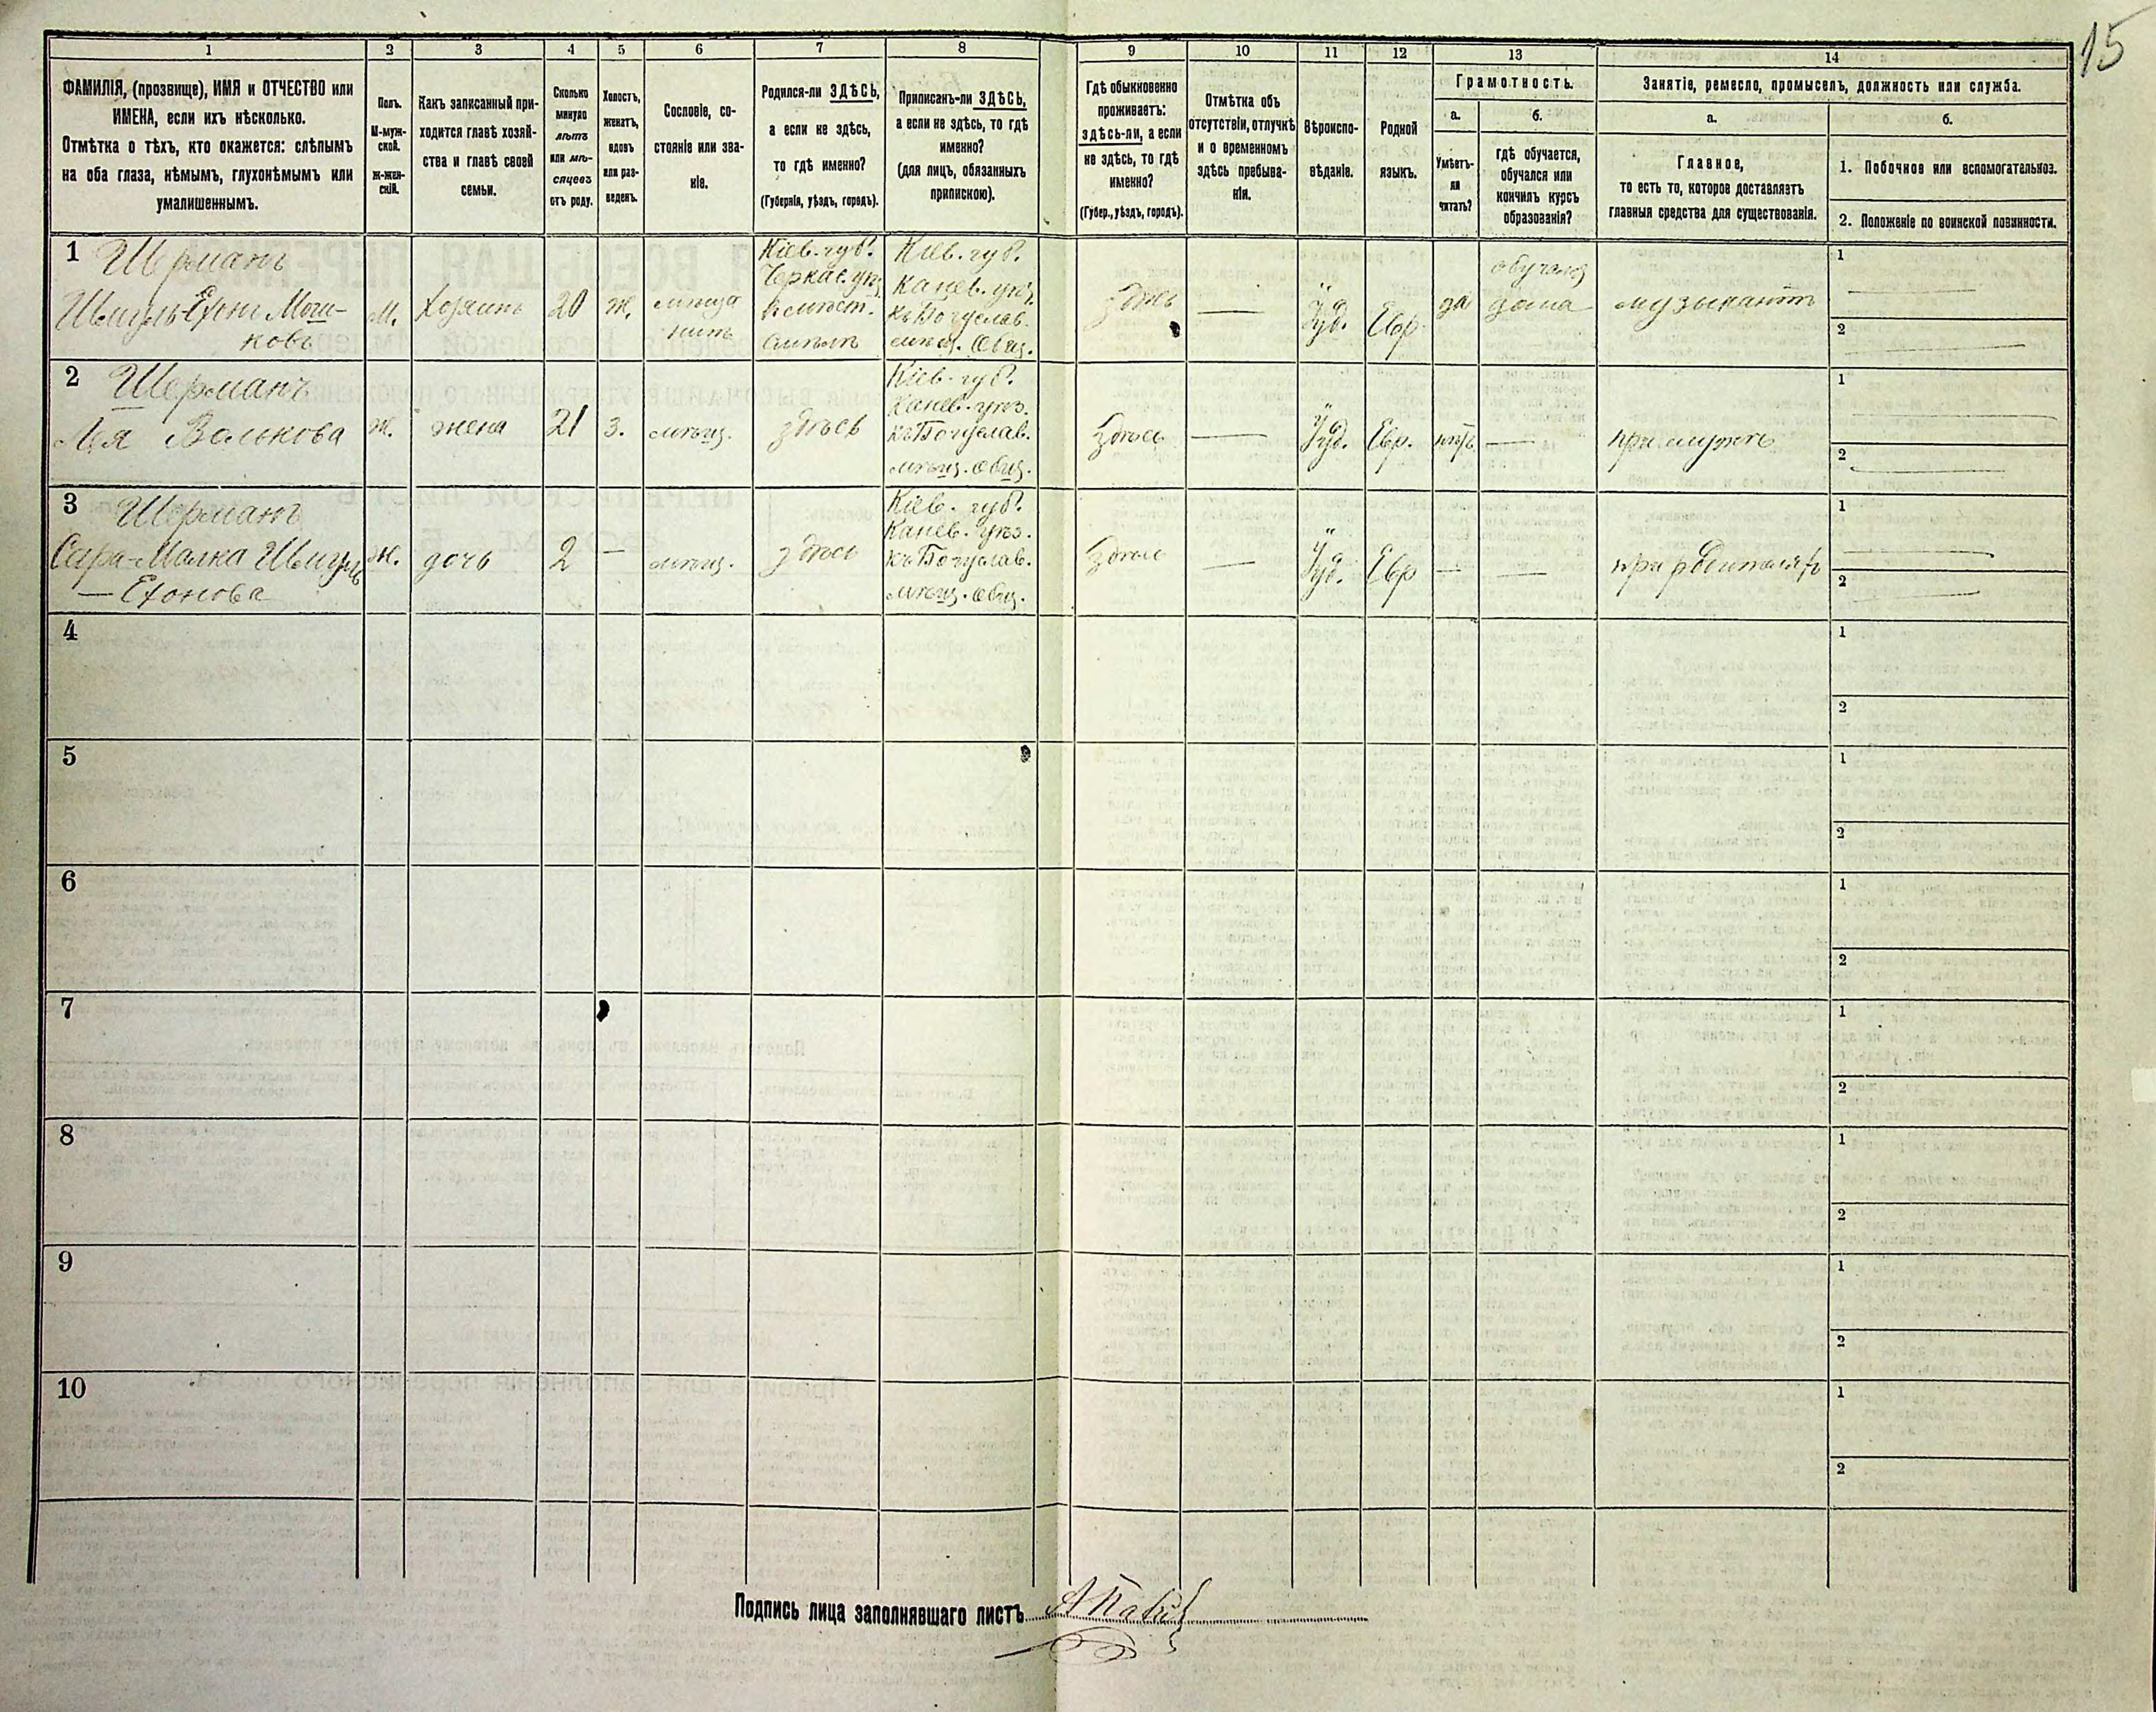 15
1 2 3 4 5 6 7 8 9 10 11 12 13 14
ФАМИЛІЯ, (прозвище), ИМЯ и ОТЧЕСТВО или
ИМЕНА, если ихъ нѣсколько.
Отмѣтка о тѣхъ, кто окажется: слѣпымъ
на оба глаза, нѣмымъ, глухонѣмымъ или
умалишеннымъ.
Полъ.
М-муж-
ской.
Ж-жен-
скій.
Какъ записанный при-
ходится главѣ хозяй-
ства и главѣ своей
семьи.
Сколько
минуло
лѣтъ
или мѣ-
сяцевъ
отъ роду.
Холостъ,
женатъ,
вдовъ
или раз-
веденъ.
Сословіе, со-
стояніе или зва-
ніе.
Родился-ли ЗДѢСЬ,
а если не здѣсь,
то гдѣ именно?
(Губернія, уѣздъ, городъ).
Приписанъ-ли ЗДѢСЬ,
а если не здѣсь, то гдѣ
именно?
(для лицъ, обязанныхъ
припискою).
Гдѣ обыкновенно
проживаетъ:
здѣсь-ли, а если
не здѣсь, то гдѣ
именно?
(Губер., уѣздъ, городъ).
Отмѣтка объ
отсутствіи, отлучкѣ
и о временномъ
здѣсь пребыва-
ніи.
Вѣроиспо-
вѣданіе.
Родной
языкъ.
Грамотность.
а.
Умѣетъ-
ли
читать?
б.
гдѣ обучается,
обучался или
кончилъ курсъ
образованія?
Занятіе, ремесло, промыселъ, должность или служба.
а.
Главное,
то есть то, которое доставляетъ
главныя средства для существованія.
б.
1. Побочное или вспомогательное.
2. Положеніе по воинской повинности.
1
Шерманъ
Шмуль-Ехон Мош-
ковъ
М.
Хозяинъ
20
Ж.
Кіев. губ.
Черкас. уѣз.
Кіев. губ.
Канев. уѣз.
къ Богуслав.
мѣщ. общ.
здѣсь
Іуд.
Евр.
да
обучался
дома
музыкантъ
1
2
2
Шерманъ
Лея Волькова
Ж.
жена
21
З.
мѣщ.
здѣсь
Кіев. губ.
Канев. уѣз.
къ Богуслав.
мѣщ. общ.
здѣсь
—
Іуд.
Евр.
нѣтъ
—
при мужѣ
1
2
3
Шерманъ
Сура-Малка Шмуль
— Ехонова
Ж.
дочь
2
—
мѣщ.
здѣсь
Кіев. губ.
Канев. уѣз.
къ Богуслав.
мѣщ. общ.
здѣсь
—
Іуд.
Евр
—
—
при родителяхъ
1
2
4
1
2
5
1
2
6
1
2
7
1
2
8
1
2
9
1
2
10
1
2
Подпись лица заполнявшаго листъ